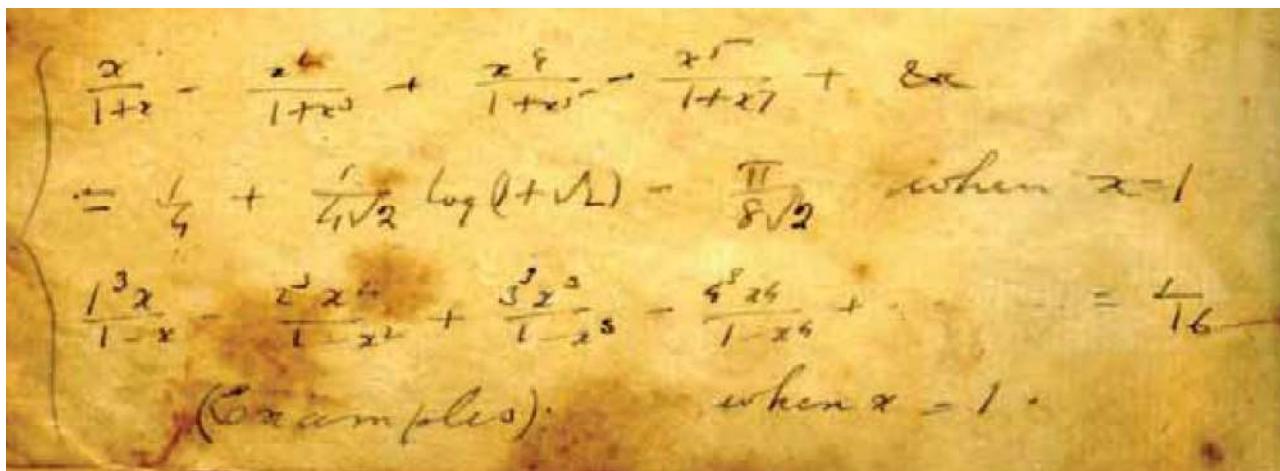 x/(1+x) - x^4/(1+x^3) + x^9/(1+x^5) - x^5/(1+x^7) + &c
= 1/4 + 1/(4√2) log(1+√2) - π/(8√2) when x=1
1^3x/(1-x) - 2^3x^4/(1-x^2) + 3^3x^9/(1-x^3) - 4^3x^4/(1-x^4) + . . . = 1/16
(Examples). when x = 1.